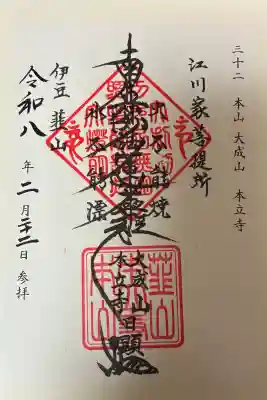 三十二 本山 大成山 本立寺
江川家菩提所
火不能焼
南無妙法蓮華経
水不能漂
大成山
本立寺
伊豆 韮山
令和八年二月二十二日 参拝